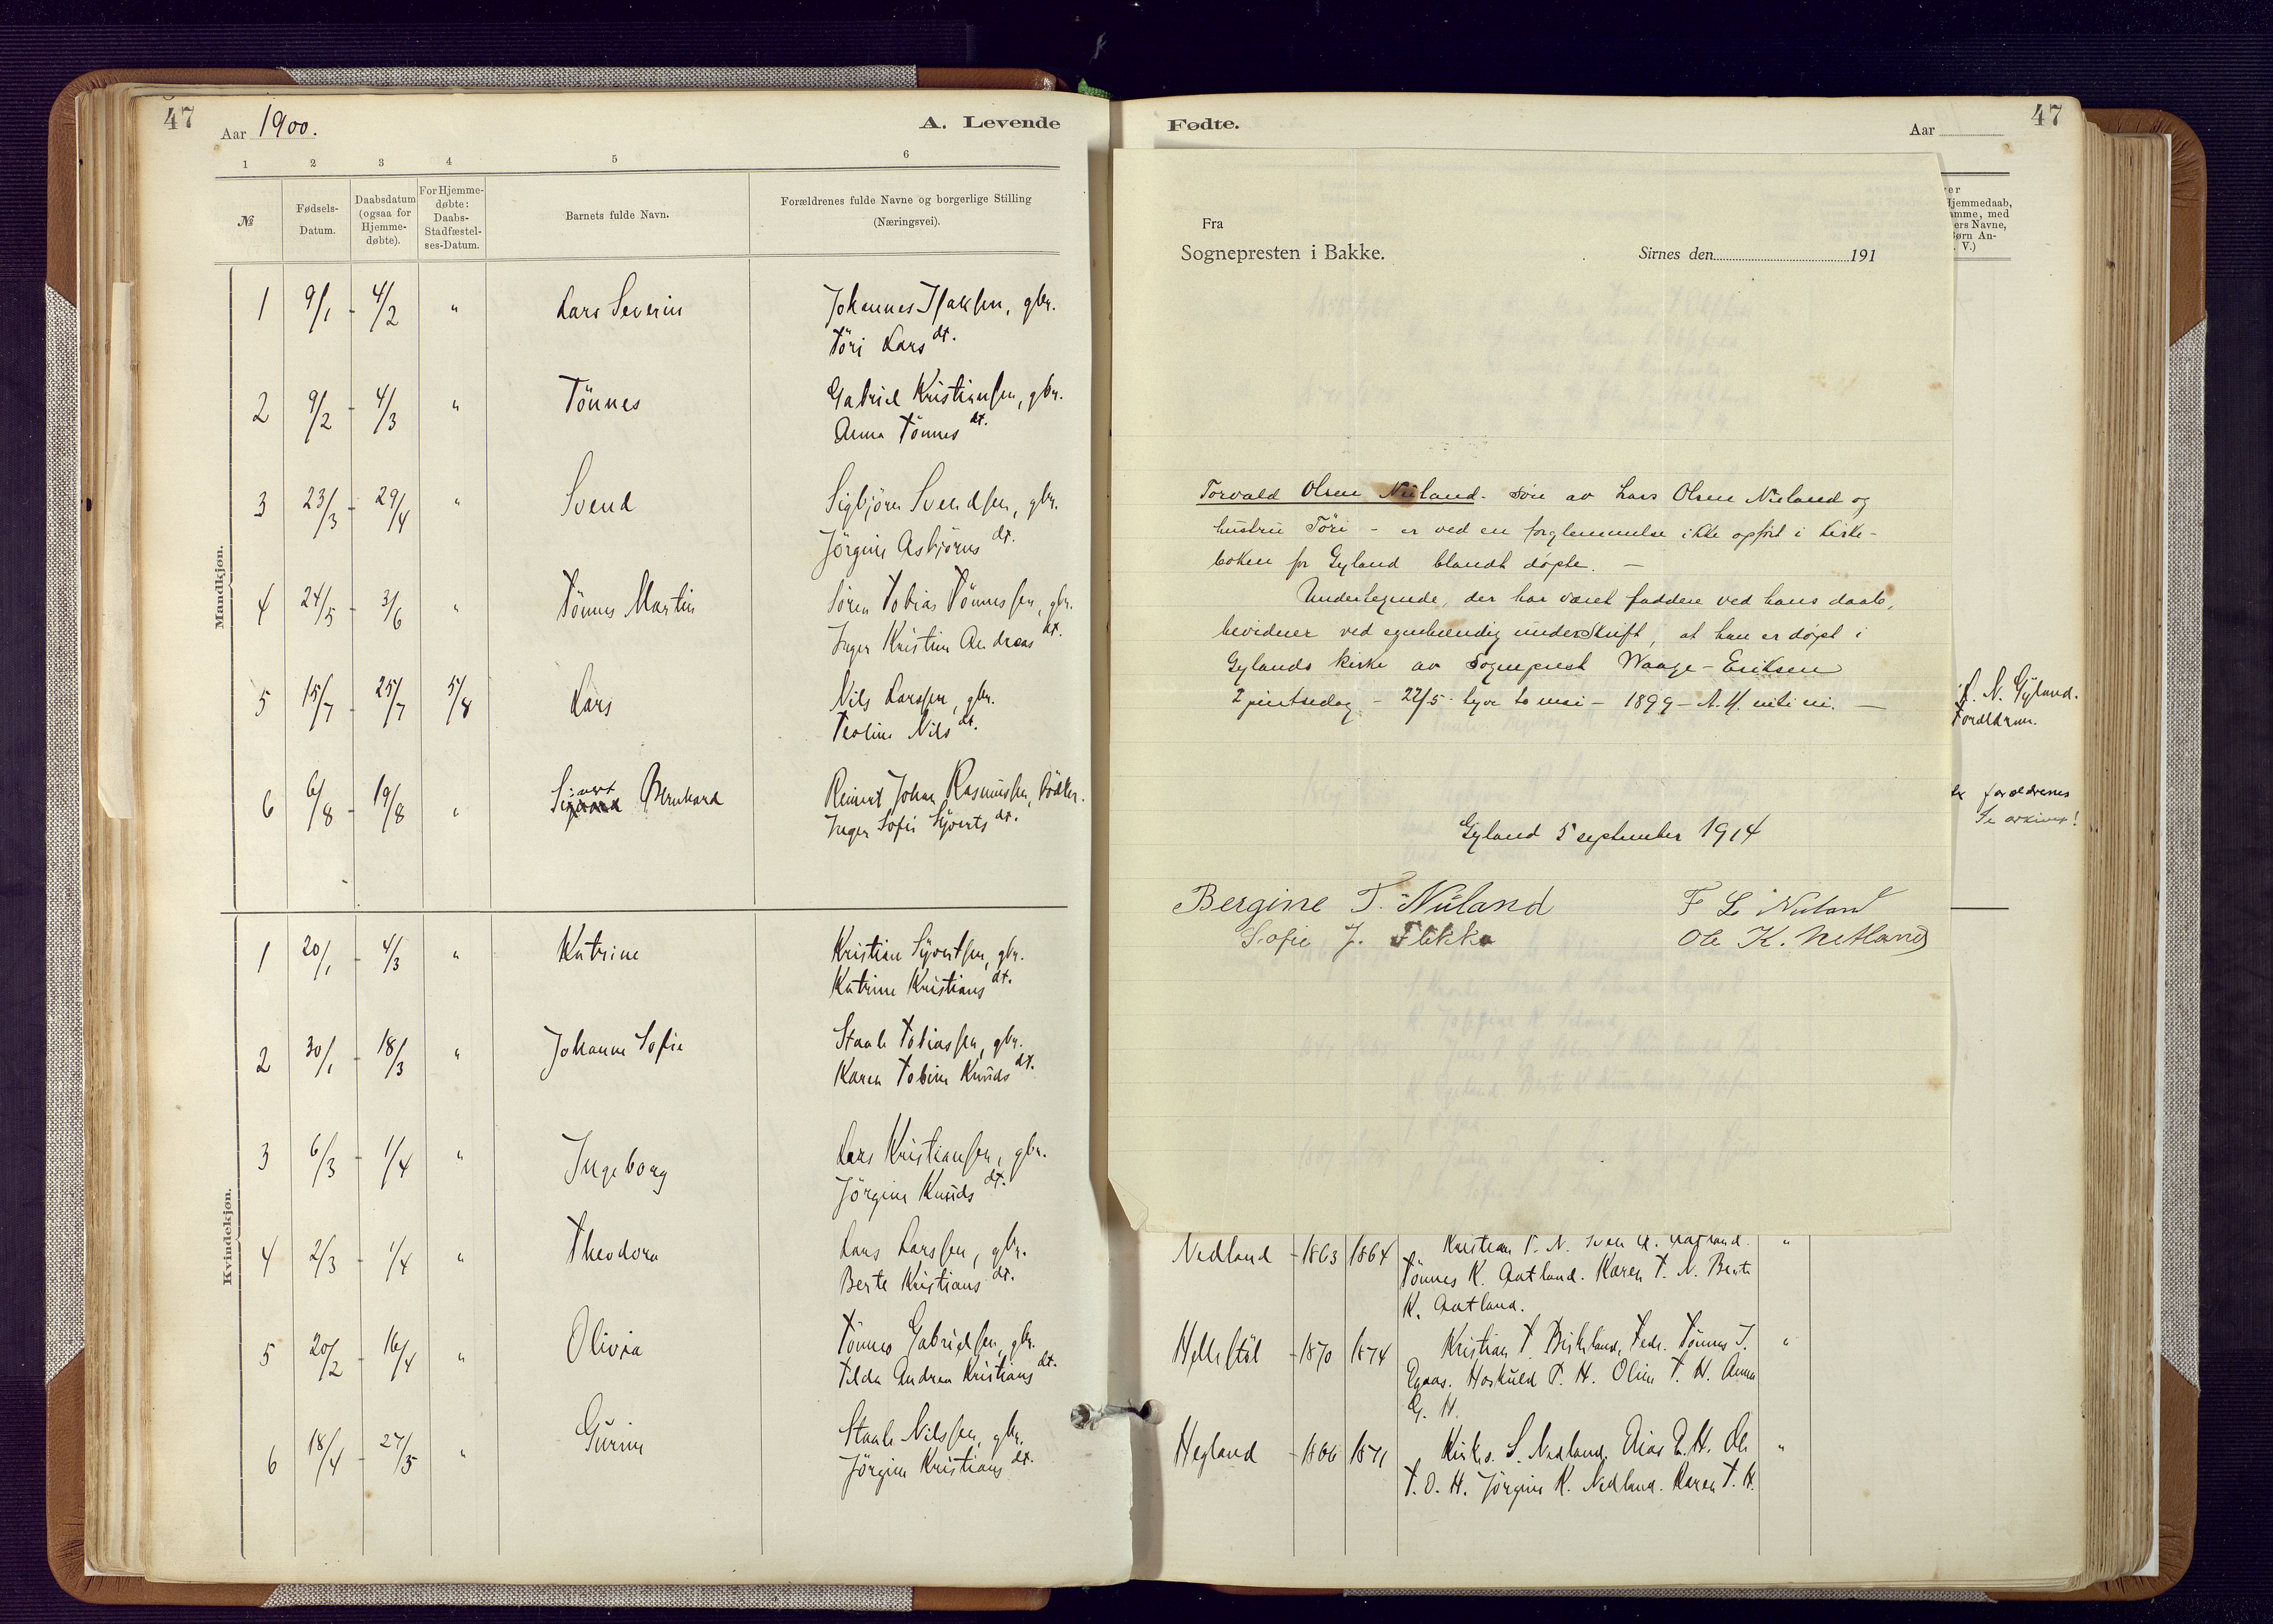 47
Aar 1900.
A. Levende
1 2 3 4 5 6
№
Fødsels-Datum.
Daabsdatum (ogsaa for Hjemme-døbte).
For Hjemme-døbte: Daabs-Stadfæstel-ses-Datum.
Barnets fulde Navn.
Forældrenes fulde Navne og borgerlige Stilling
(Næringsvei).
Mandkjøn.
1 9/1 - 4/2 " Lars Severin Johannes Isaksen, gbr.
Töri Larsdt.
2 9/2 - 4/3 " Tönnes Gabriel Kristiansen, gbr.
Anna Tönnesdt.
3 23/3 - 29/4 " Svend Sigbjörn Svendsen, gbr.
Jörgine Asbjörnsdt.
4 24/5 - 3/6 " Tönnes Martin Sören Tobias Tönnessen, gbr.
Inger Kristine Andreasdt.
5 15/7 - 25/7 5/8 Lars Nils Larssen, gbr.
Teoline Nilsdt.
6 6/8 - 19/8 " Sivert Bernhard Reinert Johan Rasmussen, Bödker.
Inger Sofie Syvertsdt.
Kvindekjøn.
1 20/1 - 4/3 " Katrine Kristian Syvertsen, gbr.
Katrine Kristiansdt.
2 30/1 - 18/3 " Johanne Sofie Staale Tobiassen, gbr.
Karen Tobine Knudsdt.
3 6/3 - 1/4 " Ingeborg Lars Kristiansen, gbr.
Jörgine Knudsdt.
4 2/3 - 1/4 " Theodora Lars Larssen, gbr.
Berte Kristiansdt.
5 20/2 - 16/4 " Olivia Tönnes Gabrielsen, gbr.
Tilda Andrea Kristiansdt.
6 18/4 - 27/5 " Gurine Staale Nilssen, gbr.
Jörgine Kristiansdt.
Fødte.
Aar
47
Hjemmedaab,
med
Navne,
An-
V.)
Fra
Sognepresten i Bakke.
Sirnes den 191
Torvald Olsen Nuland. søn av Lars Olsen Nuland og
hustru Töri - er ved en forglemmelse ikke opført i kirke-
boken for Gyland blandt døpte. —
Undertegnede, der har været faddere ved hans daab,
bevidner ved egenhændig underskrift, at han er døpt i
Gylands kirke av Sogneprest Waage-Eriksen
2 pintsedag - 22/5 - tyve to mai - 1899 - A. H. niti ni. —
Gyland 5 september 1914
Bergine T. Nuland F L Nuland
Sofie J. Flikka Ole K. Netland
N. Gyland.
Forældrene.
forældrenes
Se arkivet!
Nedland - 1863 1864 Kristian T. N.
Tönnes K. Aatland. Karen T. N. Berte
K. Aatland.
Hellestöl - 1870 1874 Kristian T. Birkeland, Tönnes J. "
Egaas. Hoskuld T. H. Oline T. H. Anna
G. H.
Hegland - 1866 1871 S. Nedland, Elias H. Ole "
T. O. H. Jörgine K. Nedland. Karen T. H.